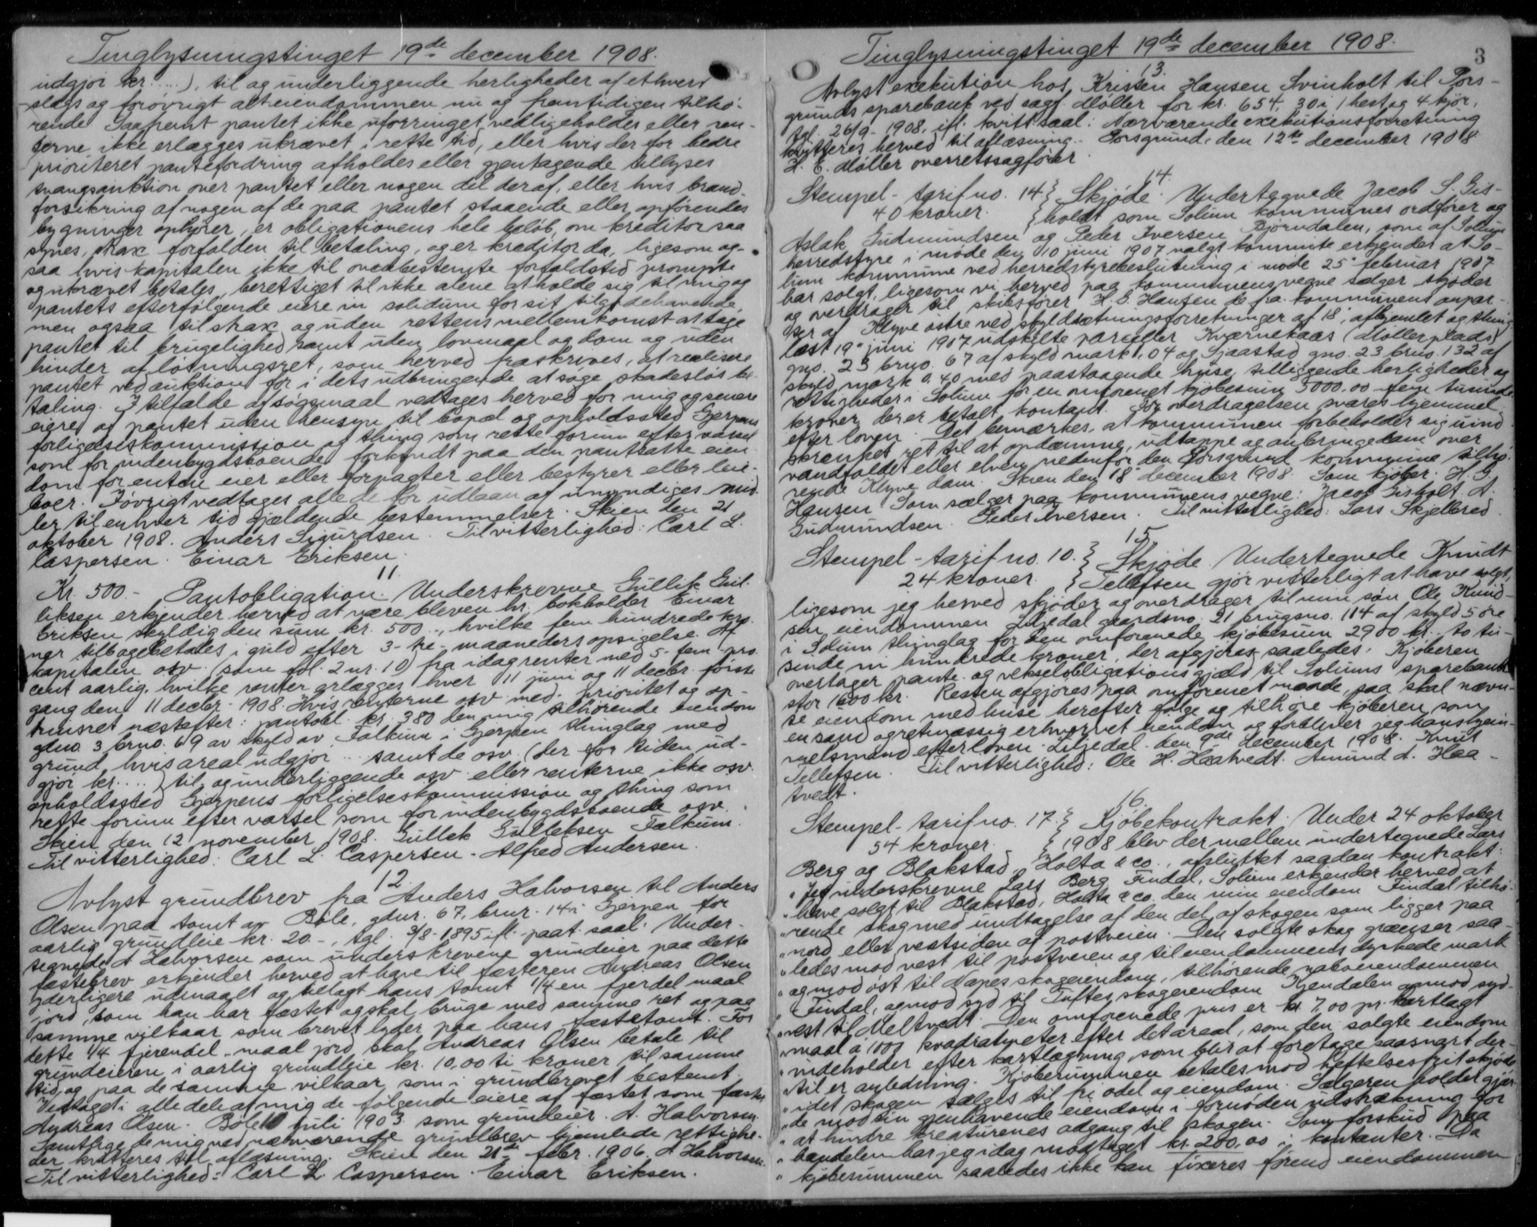 Tinglysningstinget 19de december 1908.
udgjør kr. ...), til og underliggende herligheder af ethvert
slags og forøvrigt alt eiendommen nu og fremtidigen tilhø-
rende. Saafremt pantet ikke uforringet vedligeholdes eller ren-
terne ikke erlægges ukrævet i rette tid, eller hvis der for bedre
prioriteret pantefordring afholdes eller gjentagende tillyses
tvangsauktion over pantet eller nogen del deraf, eller hvis brand-
forsikring af nogen af de paa pantet staaende eller opførendes
bygninger ophører, er obligationens hele beløb, om kreditor saa
synes, strax forfalden til betaling, og er kreditor da, ligesom og-
saa hvis kapitalen ikke til ovenbestemte forfaldstid prompte
og ukrævet betales, berettiget til ikke alene at holde sig til mig og
pantets efterfølgende eiere in solidum for sit tilgodehavende,
men ogsaa til strax og uden rettens mellemkomst at tage
pantet til brugelighed samt uden lovmaal og dom og uden
hinder af løsningsret, som herved fraskrives, at realisere
pantet ved auktion for i dets udbringende at søge skadesløs be-
taling. I tilfælde af søgsmaal vedtages herved for mig og senere
eiere af pantet uden hensyn til bopæl og opholdssted Gjerpens
forligelseskommission og thing som rette forum efter varsel
som for indenbygdsboende forkyndt paa den pantsatte eien-
dom for enten eier eller forpagter eller bestyrer eller lei-
boer. Iøvrigt vedtages alle de for udlaan af umyndiges mid-
ler til enhver tid gjældende bestemmelser. Skien den 21
oktober 1908. Anders Sigurdsen. Til vitterlighed: Carl L.
Caspersen. Einar Eriksen.
11
Kr. 500.- Pantobligation. Underskrevne Gullik Gul-
liksen erkjender herved at være bleven hr. bokholder Einar
Eriksen skyldig den sum kr. 500.-, hvilke fem hundrede kro-
ner tilbagebetales i guld efter 3-tre-maaneders opsigelse. Af
kapitalen osv. (som fol. 2 nr. 10) fra idag renter med 5-fem pro
cent aarlig, hvilke renter erlægges hver 11 juni og 11 decbr. første
gang den 11 decbr. 1908. Hvis renterne osv. med prioritet og op-
trinsret næstefter: pantobl. kr. 380 den mig tilhørende eiendom
gdno. 3 brno. 69 av skyld av Falkum i Gjerpen thinglag med
grund, hvis areal udgjør ... samt de osv. (der for tiden ud-
gjør kr. ...) til og underliggende osv. eller renterne ikke osv.
opholdssted Gjerpens forligelseskommission og thing som
rette forum efter varsel som for indenbygdsboende osv.
Skien den 12 november 1908. Gullek Gulleksen Falkum.
Til vitterlighed: Carl L. Caspersen. Alfred Andersen.
12
Avlyst grundbrev fra Anders Halvorsen til Anders
Olsen paa tomt av Bøle, gdnr. 67, brnr. 14 i Gjerpen for
aarlig grundleie kr. 20.-, tgl. 3/8-1895, paat. saal.: Under-
tegnede A Halvorsen som underskrevene grundeier paa dette
fæstebrev erkjender herved at have til fæsteren Andreas Olsen
yderligere udmaalt og tillagt hans tomt 1/4 en fjerdel maal
jord, som han har fæstet og skal bruge med samme ret og paa
samme vilkaar som brevet lyder paa hans fæstetomt. For
dette 1/4 fjerendel-maal jord skal Andreas Olsen betale til
grundeieren i aarlig grundleie kr. 10,00 ti kroner til samme
tid og paa de samme vilkaar som i grundbrevet bestemt.
Vedtaget i alle dele af mig de følgende eiere af fæstet som fæster
Andreas Olsen. Bøle 10 juli 1903 som grundeier. A. Halvorsen.
Samtlige de mig ved nærværende grundbrev hjemlede rettighe-
der kvitteres til aflæsning. Skien den 21de febr. 1906. A Halvorsen.
Til vitterlighed: Carl L. Caspersen. Einar Eriksen.
Tinglysningstinget 19de december 1908.
3
13.
Avlyst exekution hos Kristen Hansen Svinholt til Pors-
grunds sparebank ved sagf. Møller for kr. 654,30 i 1 hest og 4 kjør,
tgl. 26/9-1908, ifl. kvitt. saal.: Nærværende exekutionsforretning
kvitteres herved til aflæsning. Porsgrund, den 12te december 1908
L. C. Møller overretssagfører.
14.
Stempel-tarif no. 14 } Skjøde. Undertegnede Jacob S. Gis-
40 kroner. } holdt som Solum kommunes ordfører og
Aslak Gudmundsen og Peder Iversen Bjørndalen, som af Solum
herredstyre i møde den 10 juni 1907 valgt kommite erkjender at So-
lum kommune ved herredstyrebeslutning i møde 25 februar 1907
har solgt, ligesom vi herved paa kommunens vegne sælger skjøder
og overdrager til skibsfører H. G. Hansen de fra kommunens anpar-
ter af Klyve østre ved skyldsætningsforretninger af 18, afhjemlet og thing-
læst 19 juni 1907 udskilte parseller Kværnekaas (Møllerplads)
gno. 23 brno. 67 af skyld mark 1,04 og Graastad gno. 23 brno. 132 af
skyld mark 0,40 med paastaaende huse, tilliggende herligheder og
rettigheder i Solum for en omforenet kjøbesum 5000.00 fem tusinde
kroner, der er betalt kontant. For overdragelsen svares hjemmel
efter loven. Det bemærkes, at kommunen forbeholder sig uind-
skrænket ret til at opdæmme, udtappe og anbringe dam over
vandfaldet eller elven nedenfor den Porsgrund kommune tilhø-
rende Klyve dam. Skien den 18 december 1908. Som kjøber: H. G.
Hansen. Som sælger paa kommunens vegne: Jacob Gisholt. A.
Gudmundsen. Peder Iversen. Til vitterlighed: Lars Skjelbred.
15
Stempel-tarif no. 10. } Skjøde. Undertegnede Knudt
24 kroner. } Tellefsen gjør vitterligt at have solgt,
ligesom jeg herved skjøder og overdrager til min søn Ole Knud-
sen eiendommen Liljedal gaardsno. 21 brugsno. 114 af skyld 5 øre
i Solum thinglag for den omforenede kjøbesum 2900 kr., to tu-
sinde ni hundrede kroner, der afgjøres saaledes: Kjøberen
overtager pante- og vekselobligationsgjæld til Solums sparebank
stor 1600 kr. Resten afgjøres paa omforenet maade, saa skal nævn-
te eiendom med huse herefter følge og tilhøre kjøberen som
en sand og retmæssig erhvervet eiendom og forbliver jeg hans hjem-
melsmand efter loven. Liljedal den 9de december 1908. Knut
Tellefsen. Til vitterlighed: Ole H. Haatvedt. Amund A. Haa-
tvedt.
16.
Stempel-tarif no. 17. } Kjøbekontrakt. Under 24 oktober
54 kroner. } 1908 blev der mellem undertegnede Lars
Berg og Blakstad, Holta & co., afsluttet saadan kontrakt:
"Jeg underskrevne Lars Berg Findal, Solum erkjender herved at
"have solgt til Blakstad, Holta & co. den min eiendom Findal tilhø-
"rende skog med undtagelse af den del af skogen som ligger paa
"nord eller vestsiden af postveien. Den solgte skog grænser saa-
"ledes mod vest til postveien og til eiendommens dyrkede mark
"og mod øst til Napes skogeiendom, tilhørende naboeiendommen
"Findal, og mod syd til Tufte skogeiendom Kjendalen og mod syd-
"vest til Meltvedt. Den omforenede pris er kr. 7,00 pr. kartlagt
"maal à 1000 kvadratmeter efter det areal, som den solgte eiendom
"indeholder efter kartlægning, som blir at foretage saasnart der-
"til er anledning. Kjøbesummen betales mod heftelsesfrit skjøde
"idet skogen sælges til fri odel og eiendom. Sælgeren holder gjær-
"de mod sin gjenhavende eiendom i fornøden udstrækning for
"at hindre kreaturenes adgang til skogen. Som forskud paa
"handelen har jeg idag modtaget kr. 200,00 i kontanter. Da
"kjøbesummen saaledes ikke kan fixeres førend eiendommen